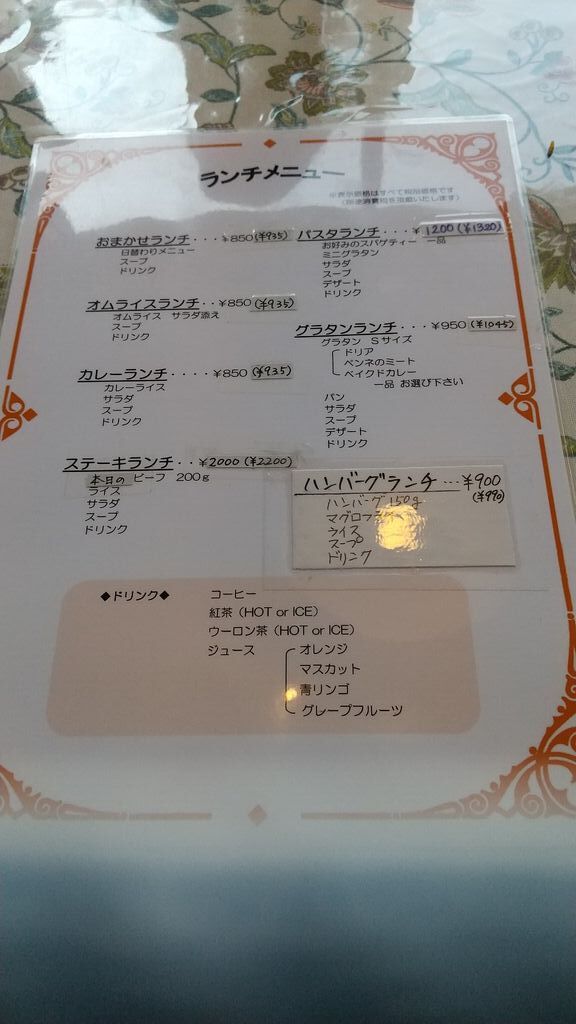 ランチメニュー
※表示価格はすべて税抜価格です
(別途消費税を頂戴いたします)
おまかせランチ・・・¥850(¥935)
日替わりメニュー
スープ
ドリンク
オムライスランチ・・¥850(¥935)
オムライス サラダ添え
スープ
ドリンク
カレーランチ・・・・¥850(¥935)
カレーライス
サラダ
スープ
ドリンク
ステーキランチ・・¥2000(¥2200)
本日の ビーフ 200g
ライス
サラダ
スープ
ドリンク
パスタランチ・・・¥1200(¥1320)
お好みのスパゲティー 一品
ミニグラタン
サラダ
スープ
デザート
ドリンク
グラタンランチ・・・¥950(¥1045)
グラタン Sサイズ
ドリア
ペンネのミート
ベイクドカレー
一品 お選び下さい
パン
サラダ
スープ
デザート
ドリンク
ハンバーグランチ…¥900
(¥990)
ハンバーグ150g
マグロフライ
ライス
スープ
ドリンク
◆ドリンク◆ コーヒー
紅茶(HOT or ICE)
ウーロン茶(HOT or ICE)
ジュース オレンジ
マスカット
青リンゴ
グレープフルーツ